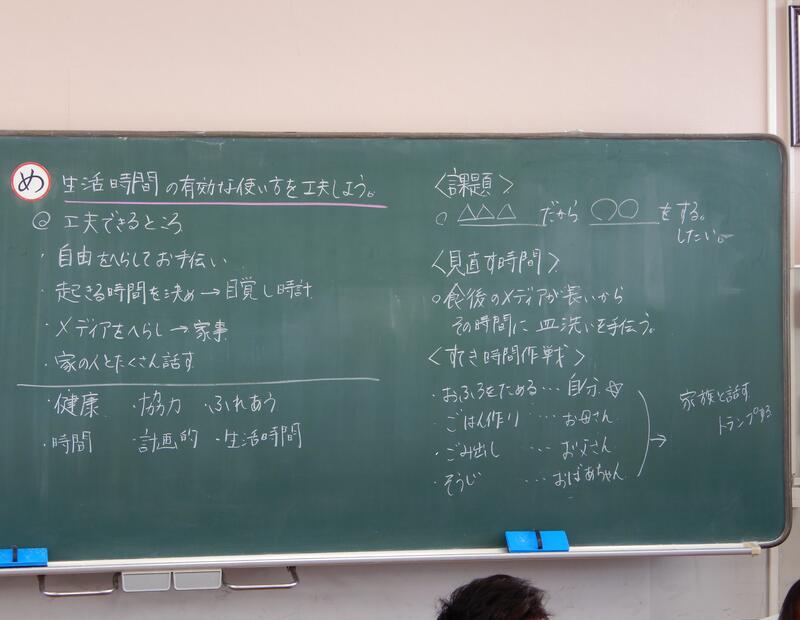 め 生活時間の有効な使い方を工夫しよう。
◎ 工夫できるところ
・自由をへらしてお手伝い
・起きる時間を決め→目覚し時計
・メディアをへらし→家事
・家の人とたくさん話す
・健康 ・協力 ・ふれあう
・時間 ・計画的 ・生活時間
〈課題〉
○ △△△ だから ○○ をする。
したい。
〈見直す時間〉
○食後のメディアが長いから
その時間に皿洗いを手伝う。
〈すてき時間作戦〉
・おふろをためる…自分☆
・ごはん作り …お母さん
・ごみ出し …お父さん
・そうじ …おばあちゃん
→ 家族と話す
トランプする